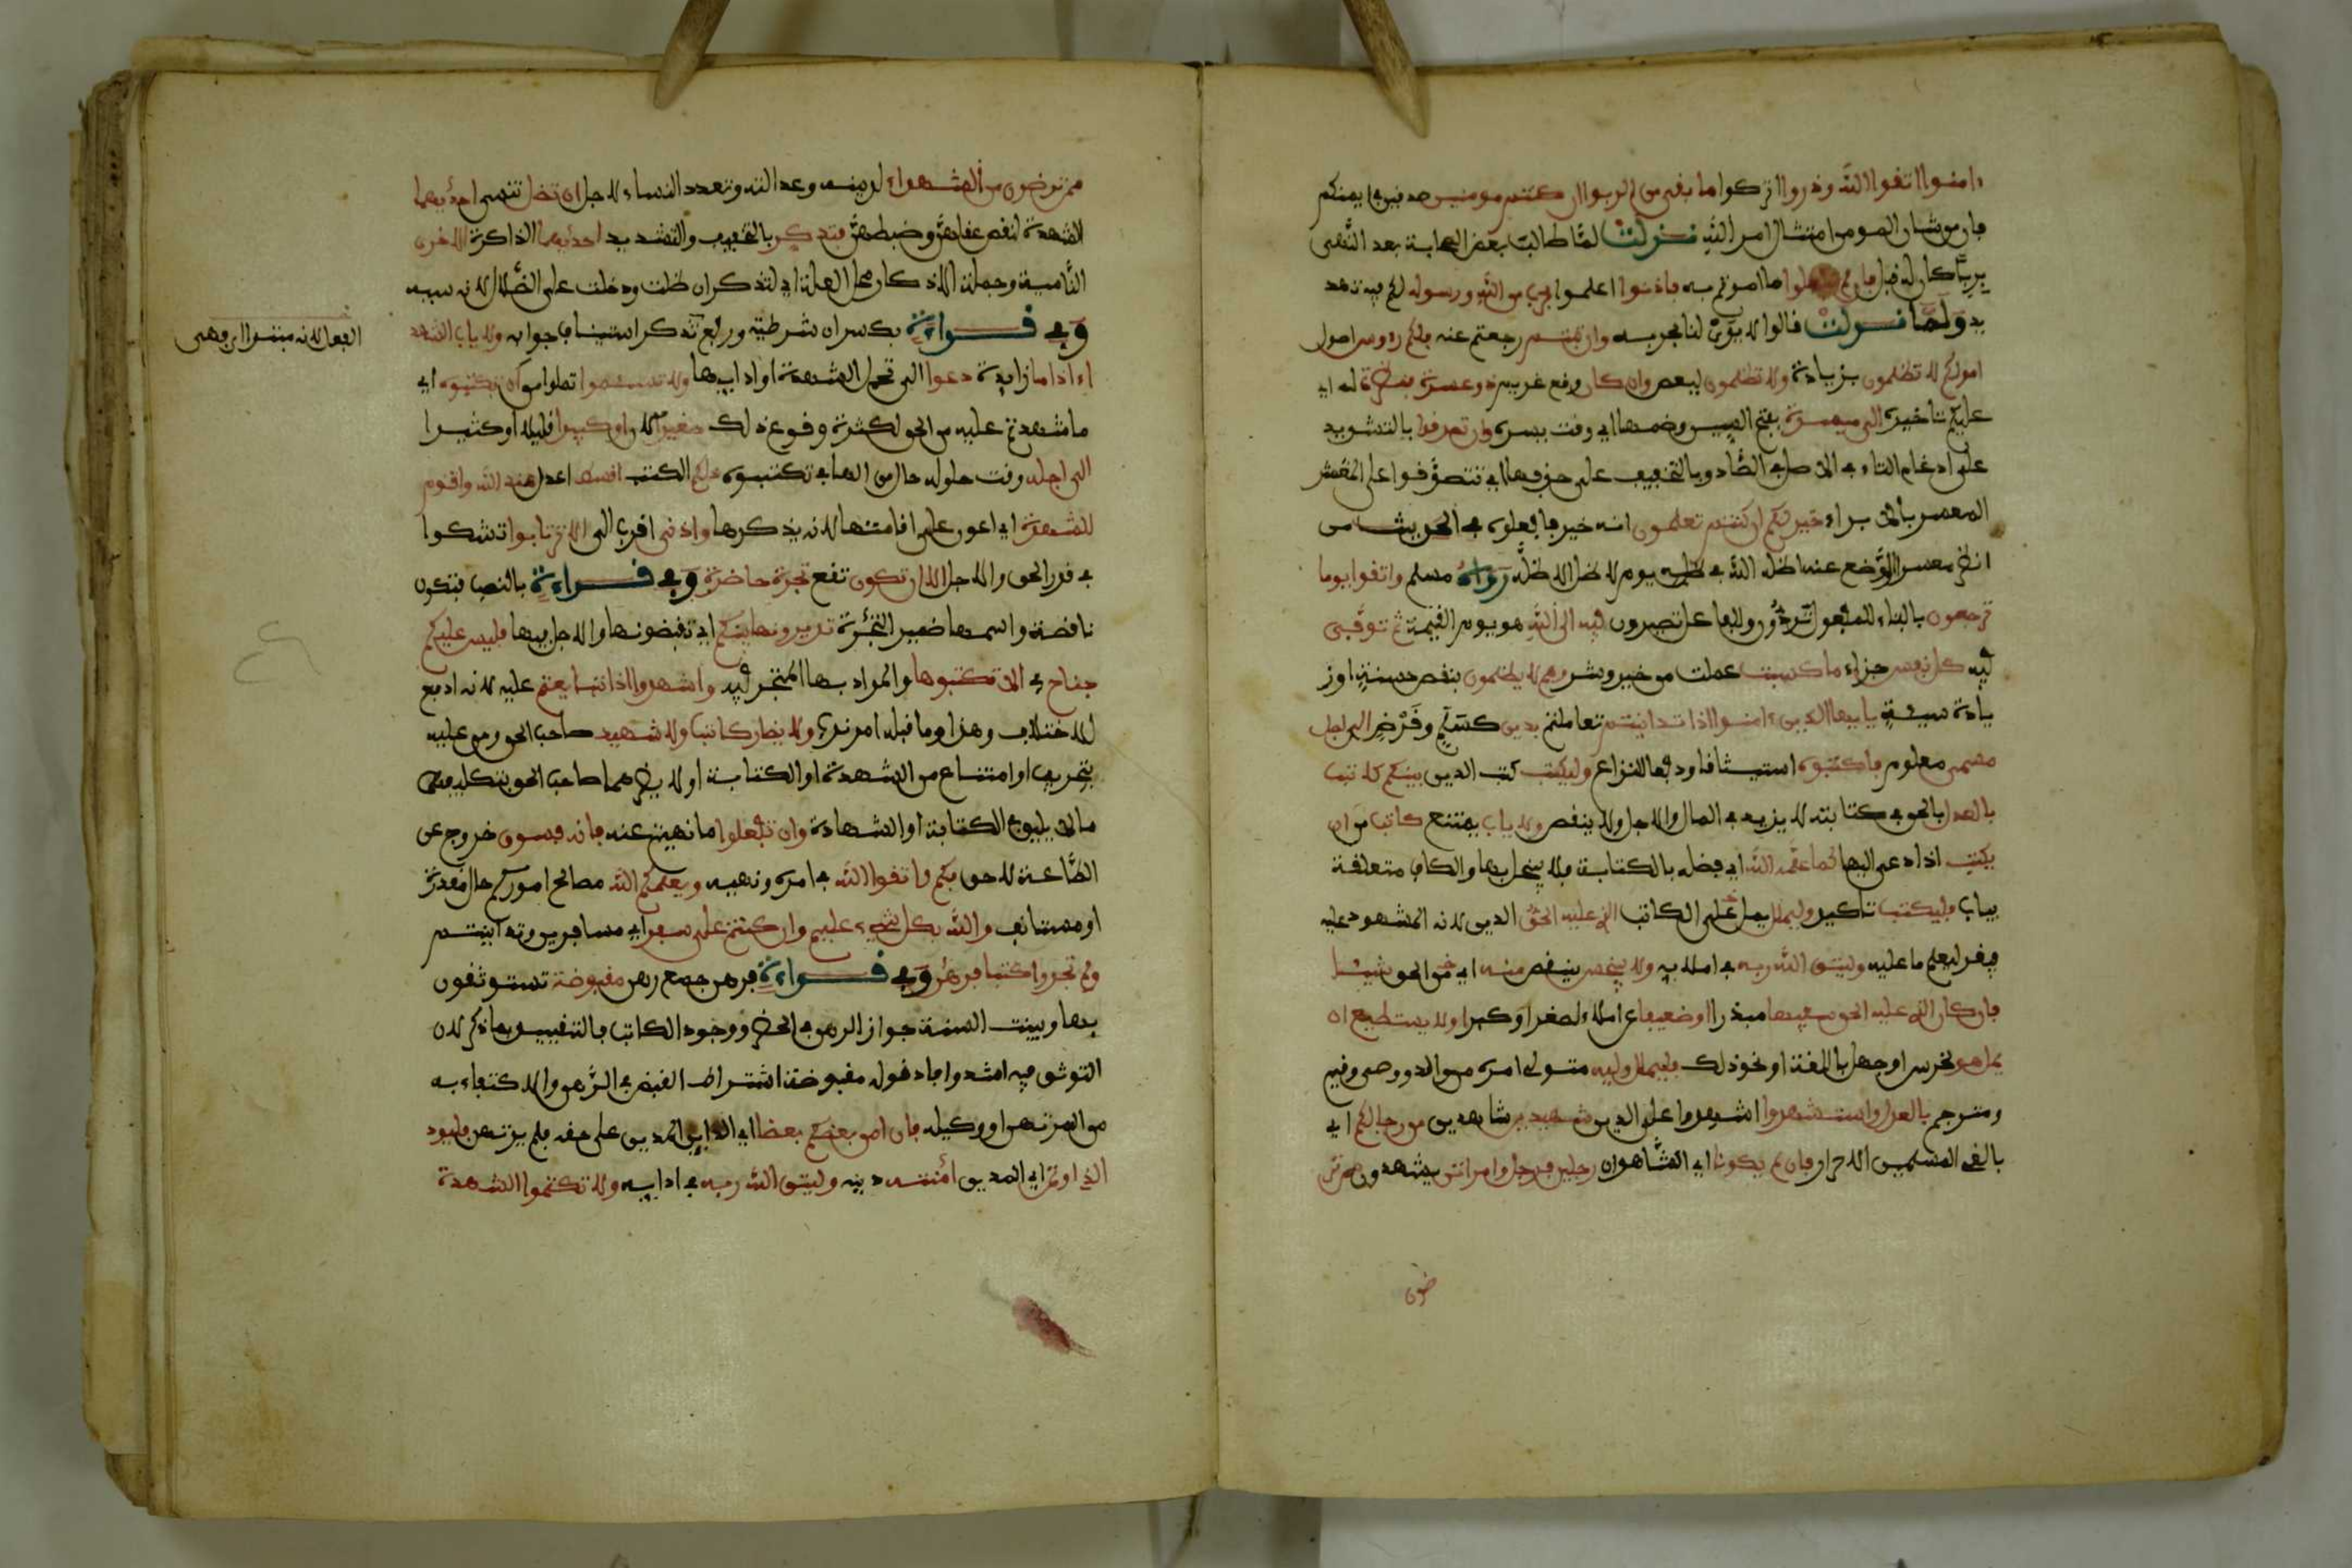 ءامنوا اتقوا الله وذروا اتركوا ما بقي من الربوا ان كنتم مومنين صدقين في ايمنكم
فان من شان المومن امتثال امر الله نزلت لما طالب بعض الصحابة بعد النهي
بربا كان له قبل فان لم تفعلوا ما امرتم به فاذنوا اعلموا بحرب من الله ورسوله لكم فيه تهد
يد ولما نزلت قالوا لا يدي لنا بحربه وان تبتم رجعتم عنه فلكم رءوس اصول
امولكم لا تظلمون بزيادة ولا تظلمون بنقص وان كان وقع غريم ذو عسرة فنظرة له اي
عليكم تاخيره الى ميسرة بفتح السين وضمها اي وقت يسره وان تصدقوا بالتشديد
على ادغام التاء في الاصل في الصاد وبالتخفيف على حذفها اي تتصدقوا على
المعسر بالابراء خير لكم ان كنتم تعلمون انه خير فافعلوه في الحديث من
انظر معسرا او وضع عنه اظله الله في ظله يوم لا ظل الا ظله رواه مسلم واتقوا يوما
ترجعون بالبناء للمفعول تردون وللفاعل تصيرون فيه الى الله هو يوم القيمة ثم توفى
فيه كل نفس جزاء ما كسبت عملت من خير وشر وهم لا يظلمون بنقص حسنة او ز
يادة سيئة يايها الذين ءامنوا اذا تداينتم تعاملتم بدين كسلم وقرض الى اجل
مسمى معلوم فاكتبوه استيثاقا ودفعا للنزاع وليكتب كتب الدين بينكم كاتب
بالعدل بالحق في كتابته لا يزيد في المال والاجل ولا ينقص ولا ياب يمتنع كاتب من ان
يكتب اذا دعي اليها كما علمه الله اي فضله بالكتابة فلا يبخل بها والكاف متعلقة
بياب فليكتب تاكيد وليملل يمل على الكاتب الذي عليه الحق الدين لانه المشهود عليه
فيقر ليعلم ما عليه وليتق الله ربه في املايه ولا يبخس ينقص منه اي من الحق شيئا
فان كان الذي عليه الحق سفيها مبذرا او ضعيفا عن املاء لصغر او كبر او لا يستطيع ان
يمل هو لخرس او جهل باللغة او نحو ذلك فليملل وليه متولي امره من والد ووصي وقيم
ومترجم بالعدل واستشهدوا اشهدوا على الدين شهيدين شاهدين من رجالكم اي
بالغي المسلمين الاحرار فان لم يكونا اي الشاهدان رجلين فرجل وامراتن يشهدون ممن تر
ضون
ممن ترضون من الشهداء لدينه وعدالته وتعدد النساء لاجل ان تضل تنسى احديهما
الشهدة لنقص عقلهن وضبطهن فتذكر بالتخفيف والتشديد احديهما الذاكرة الاخرى
الناسية وجملة الاذكار محل العلة اي لتذكر ان ضلت ودخلت على الضلال لانه سببه
وفي قراءة بكسر ان شرطية ورفع تذكر استيناف جوابه ولا ياب الشهد
اء اذا ما زايدة دعوا الى تحمل الشهدة او ادايها ولا تسئموا تملوا من ان تكتبوه اي
ما شهدتم عليه من الحق لكثرة وقوع ذلك صغيرا كان او كبيرا قليلا او كثيرا
الى اجله وقت حلوله حال من الهاء في تكتبوه ذلكم الكتب اقسط اعدل عند الله واقوم
للشهدة اي اعون على اقامتها لانه يذكرها وادنى اقرب الى الا ترتابوا تشكوا
في قدر الحق والاجل الا ان تكون تقع تجرة حاضرة وفي قراءة بالنصب فتكون
ناقصة واسمها ضمير التجرة تديرونها بينكم اي تقبضونها ولا اجل فيها فليس عليكم
جناح في الا تكتبوها والمراد بها المتجر فيه واشهدوا اذا تبايعتم عليه لانه ادفع
للاختلاف وهذا وما قبله امر ندب ولا يضار كاتب ولا شهيد صاحب الحق ومن عليه
بتحريف او امتناع من الشهدة او الكتابة او لا يضرهما صاحب الحق بتكليفهما
ما لا يليق في الكتابة او الشهادة وان تفعلوا ما نهيتم عنه فانه فسوق خروج عن
الطاعة لاحق بكم واتقوا الله في امره ونهيه ويعلمكم الله مصالح اموركم حال مقدرة
او مستانف والله بكل شيء عليم وان كنتم على سفر اي مسافرين وتداينتم
ولم تجدوا كتبا فرهن وفي قراءة فرهن جمع رهن مقبوضة تستوثقون
بها وبينت السنة جواز الرهن في الحضر ووجود الكاتب فالتقييد بما ذكر لان
التوثق فيه اشد وافاد قوله مقبوضة اشتراط القبض في الرهن والاكتفاء به
من المرتهن او وكيله فان امن بعضكم بعضا اي الداين المدين على حقه فلم يرتهن فليود
الذي اوتمن اي المدين امنته دينه وليتق الله ربه في ادايه ولا تكتموا الشهدة
الفعل لانه مبنوا